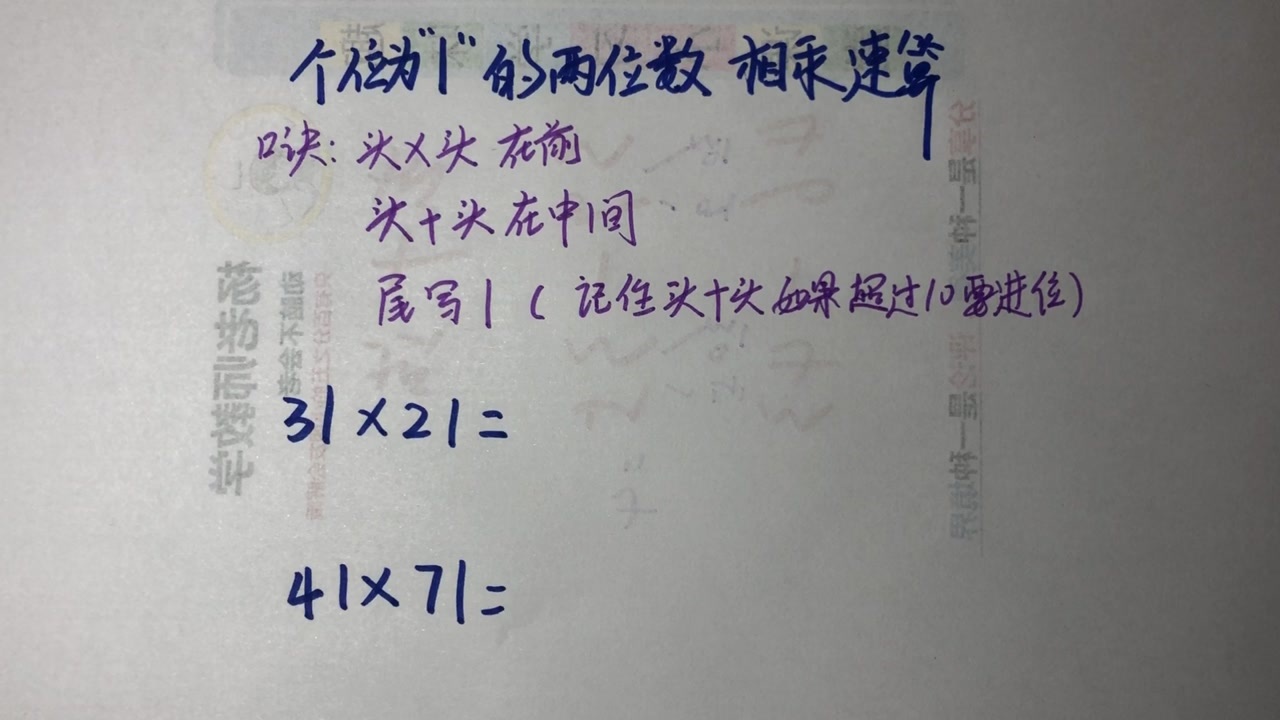 个位为"1"的两位数相乘速算
口诀：头×头在前
头十头在中间
尾写1（记住头十头如果超过10要进位）
31×21=
41×71=